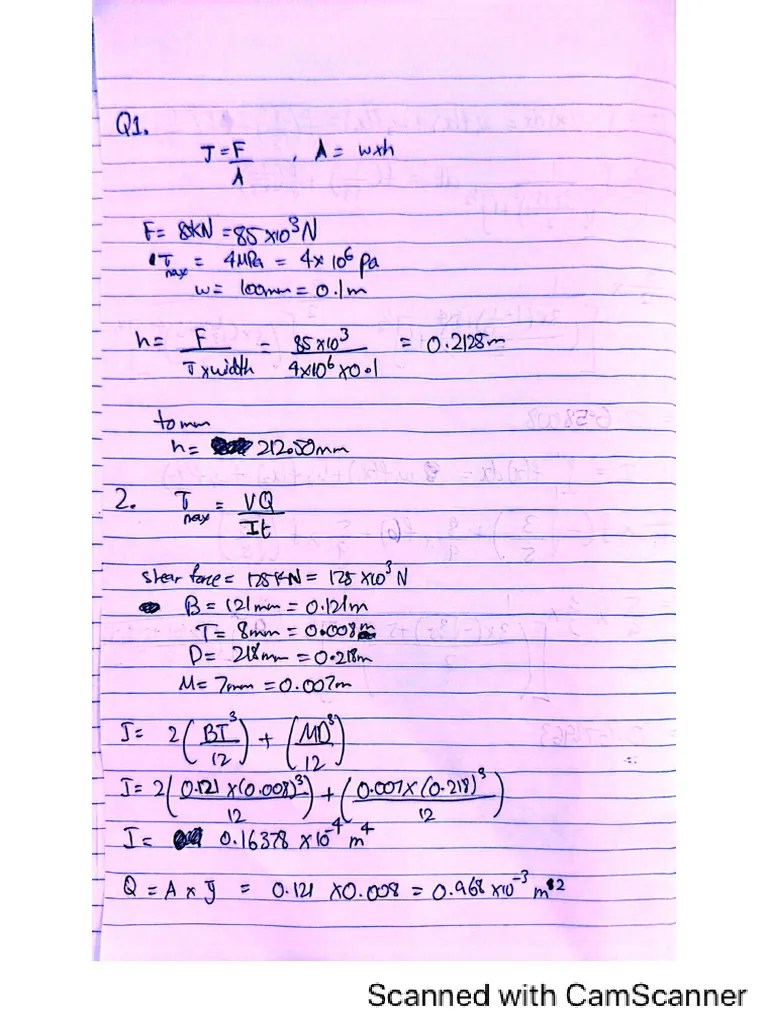 Q1.
J = F/A , A = w×h
F = 85KN = 85×10³N
τmax = 4MPa = 4×10⁶ Pa
w = 100mm = 0.1m
h = F/(J × width) = 85×10³/(4×10⁶×0.1) = 0.2128m
to mm
h = 212.50mm
2. τmax = VQ/It
shear force = 125KN = 125×10³N
B = 121mm = 0.121m
T = 8mm = 0.008m
D = 218mm = 0.218m
M = 7mm = 0.007m
I = 2(BT³/12) + (MD³/12)
I = 2(0.121×(0.008)³/12) + (0.007×(0.218)³/12)
I = 0.16378×10⁻⁴ m⁴
Q = A × ȳ = 0.121×0.008 = 0.968×10⁻³ m²
Scanned with CamScanner